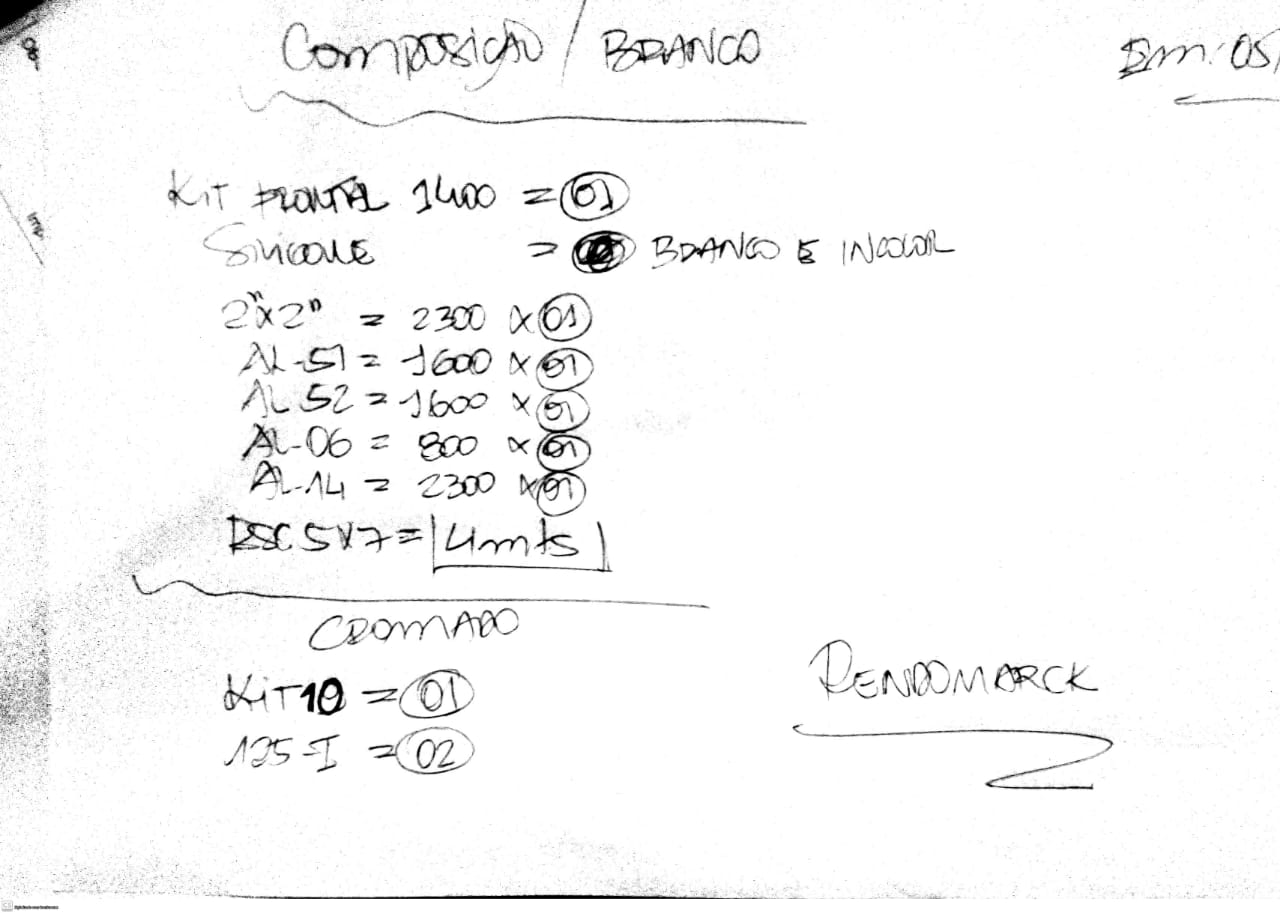 Composição / BRANCO
Em: 05/
KIT FRONTAL 1400 = 01
Silicone = BRANCO E INCOLOR
2"x2" = 2300 x 01
AL-51 = 1600 x 01
AL 52 = 1600 x 01
AL-06 = 800 x 01
AL-14 = 2300 x 01
BSC 5x7 = 4mts
CROMADO
KIT 10 = 01
125-I = 02
RENDOMARCK